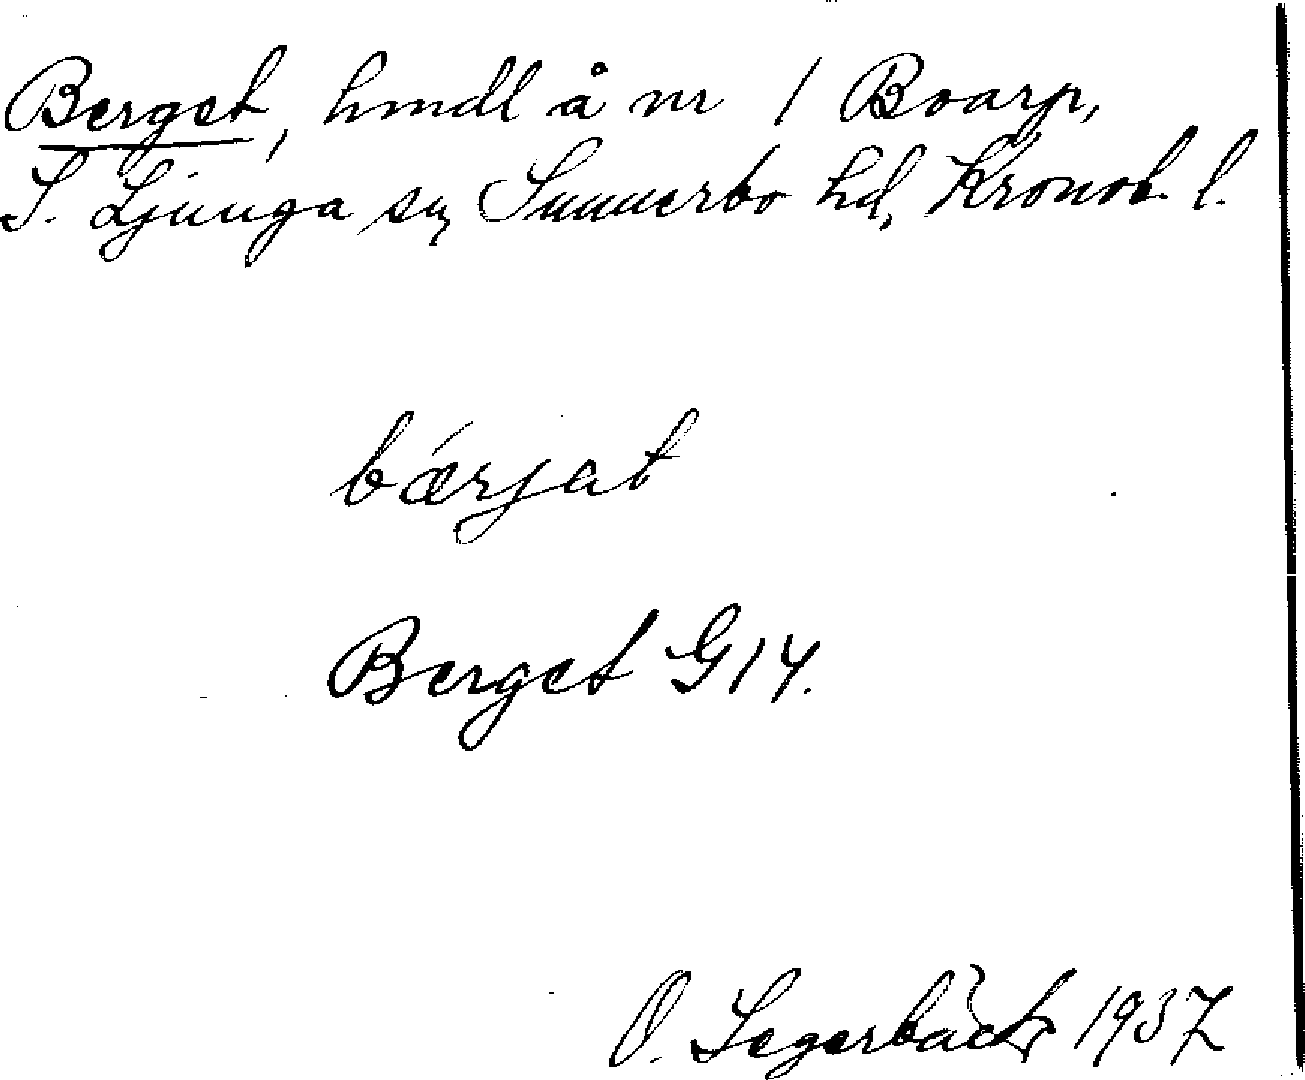 Berget, hmdl å nr 1 Boarp,
S. Ljunga sn, Sunnerbo hd, Kronob. l.
bǽrjat
Berget G14.
O. Segerbäck 1937